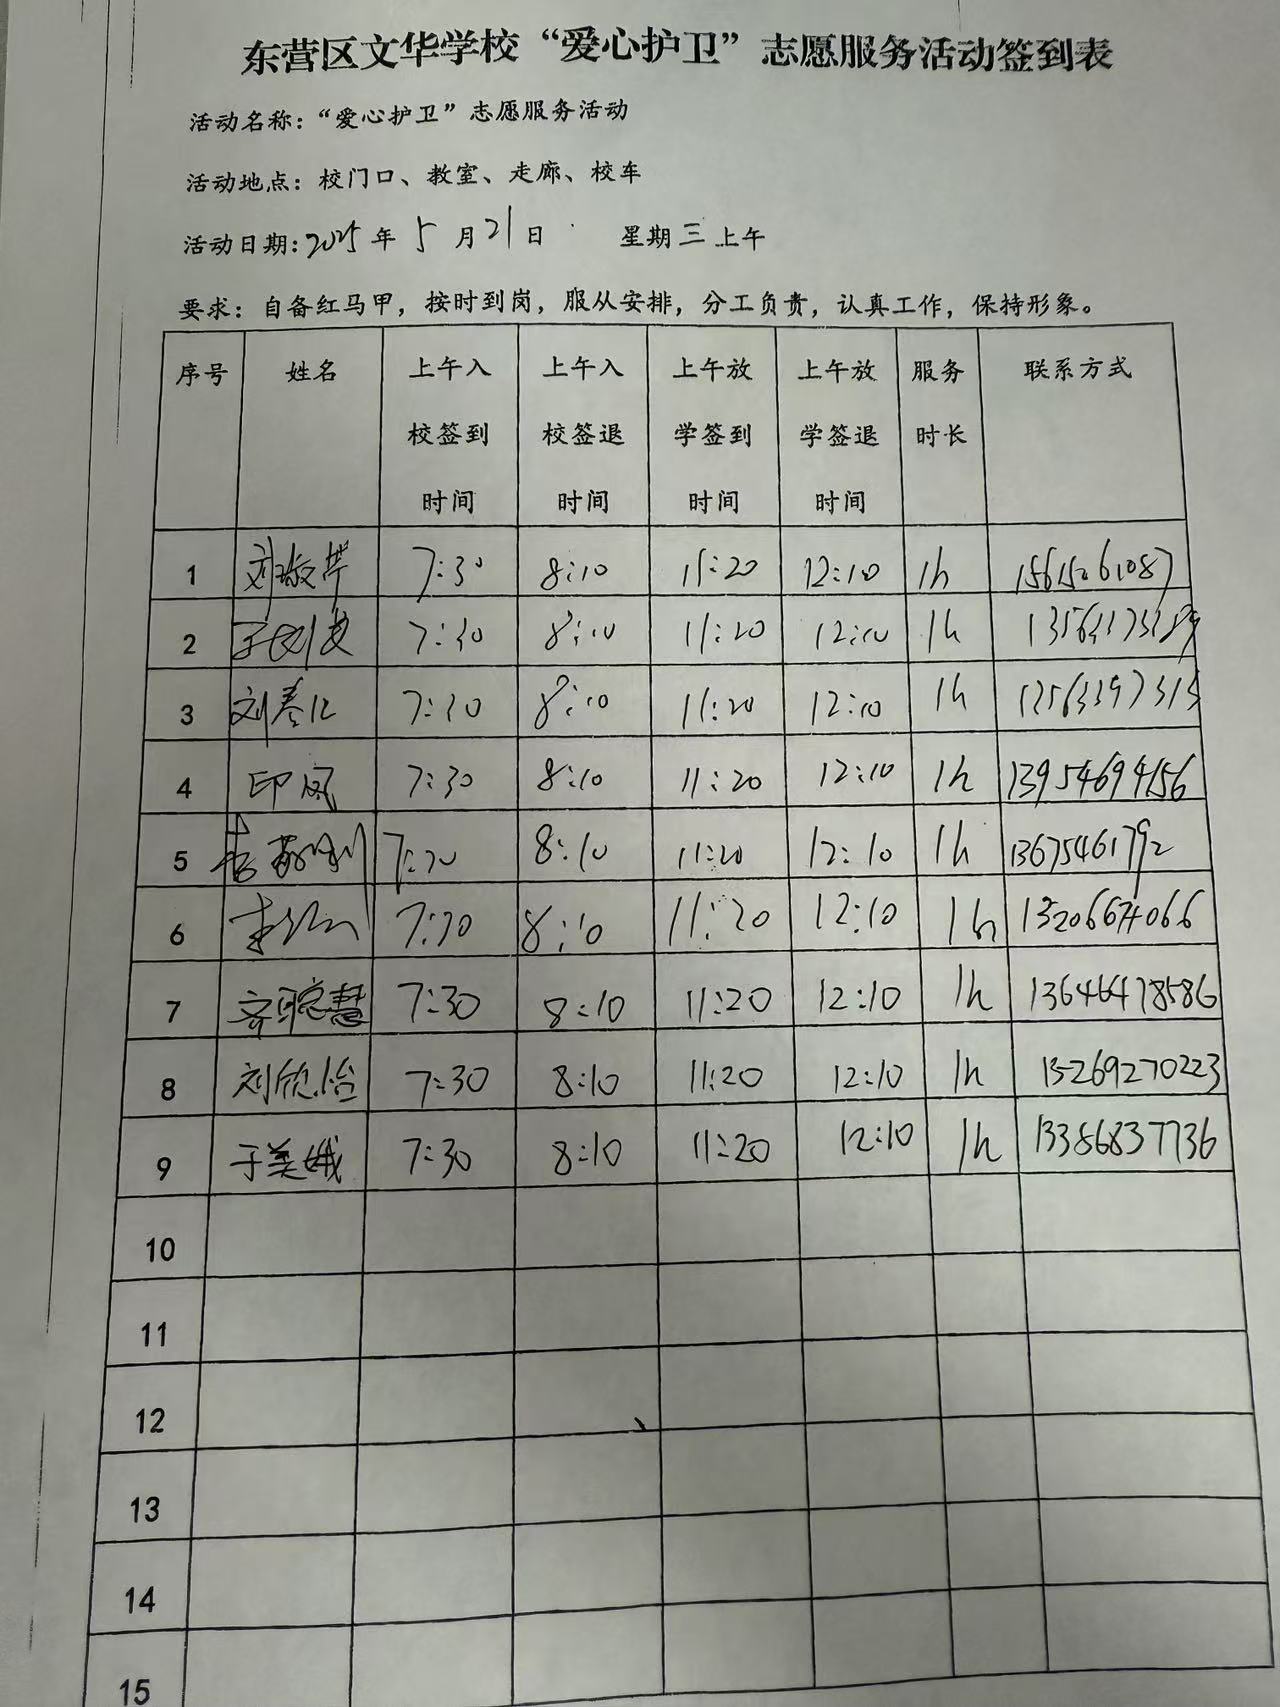 东营区文华学校“爱心护卫”志愿服务活动签到表
活动名称：“爱心护卫”志愿服务活动
活动地点：校门口、教室、走廊、校车
活动日期：2025年 5 月 21 日 星期三上午
要求：自备红马甲，按时到岗，服从安排，分工负责，认真工作，保持形象。
序号 姓名 上午入校签到时间 上午入校签退时间 上午放学签到时间 上午放学签退时间 服务时长 联系方式
1 7:30 8:10 11:20 12:10 1h 15615261087
2 7:30 8:10 11:20 12:10 1h
3 刘春江 7:30 8:10 11:20 12:10 1h
4 印凤 7:30 8:10 11:20 12:10 1h 13954694156
5 8:10 11:20 12:10 1h 13675461792
6 7:30 8:10 11:20 12:10 1h
7 齐聪慧 7:30 8:10 11:20 12:10 1h 13646478586
8 刘欣怡 7:30 8:10 11:20 12:10 1h 15269270223
9 于美娥 7:30 8:10 11:20 12:10 1h 13386837736
10
11
12
13
14
15